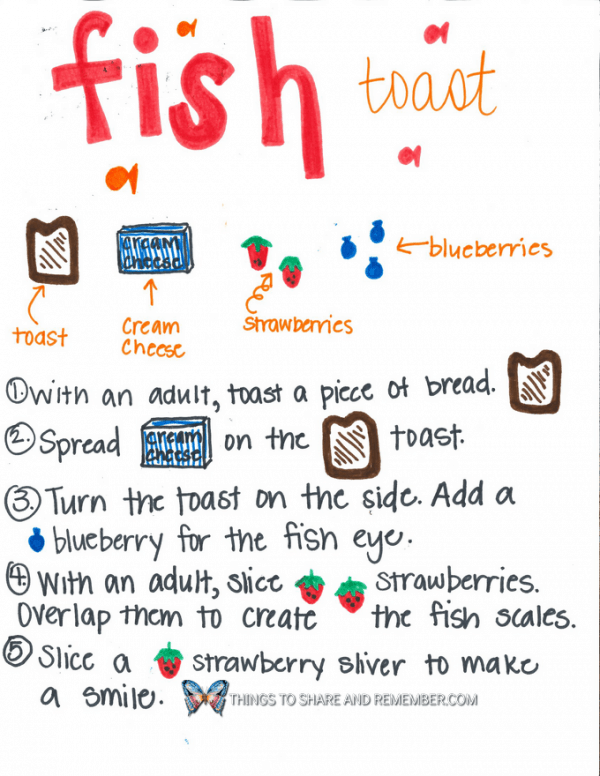 fish toast
cream cheese
blueberries
toast
Cream
Cheese
Strawberries
1. With an adult, toast a piece of bread.
2. Spread cream cheese on the toast.
3. Turn the toast on the side. Add a
blueberry for the fish eye.
4 With an adult, slice strawberries.
Overlap them to create the fish scales.
5 Slice a strawberry sliver to make
a smile. THINGS TO SHARE AND REMEMBER.COM